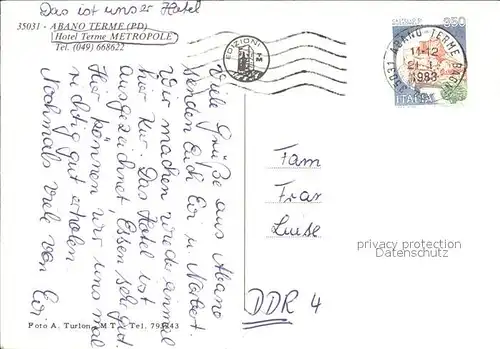 Das ist unser Hotel
35031 - ABANO TERME (PD)
Hotel Terme METROPOLE
Tel. (049) 668622
Viele Grüße aus Abano
senden Euch Evi u. Norbert.
Wir machen wieder einmal
hier Kur. Das Hotel ist
ausgezeichnet, Essen sehr gut.
Hier können wir uns mal
richtig gut erholen.
Nochmals viele von
Evi
Foto A. Turlon - M.T. - Tel. 793443
EDIZIONI
A M
350
35031 ABANO TERME BAGNI
11-12
1983
ITALIA
Fam
Fran
Luise
DDR 4
privacy protection
Datenschutz